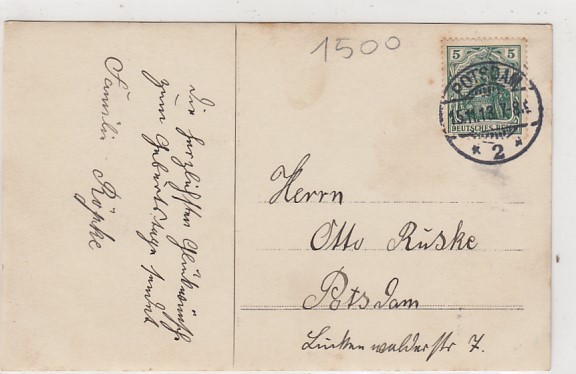 Die herzlichsten Glückwünsche
zum Geburtstage sendet
Familie Röpke
1500
5 5
DEUTSCHES REICH
POTSDAM
* 2 *
Herrn
Otto Ruske
Potsdam
Luckenwalderstr 7.